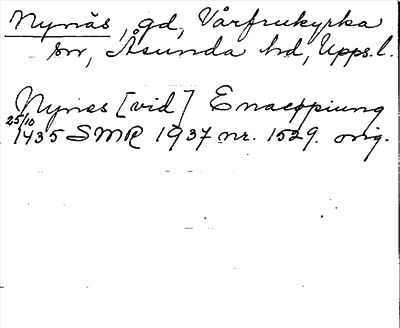 Nynäs, gd, Vårfrukyrka
sn, Åsunda hd, Upps. l.
Nynes [vid] Enacøpiung
25/10 1435 SMR 1937 nr. 1529. orig.